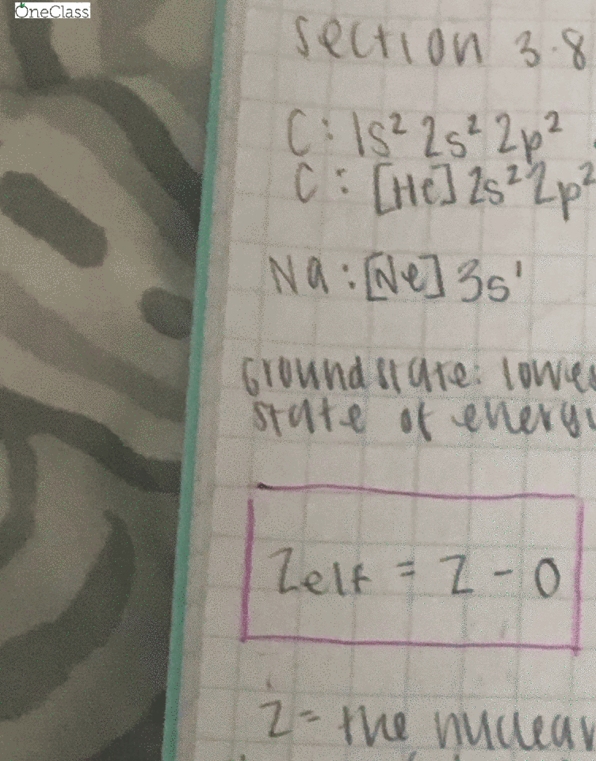 OneClass
Section 3.8
C: 1s² 2s² 2p²
C: [He] 2s² 2p²
Na: [Ne] 3s¹
Ground state: lowes
state of energy
Zeff = Z - σ
Z = the nuclear